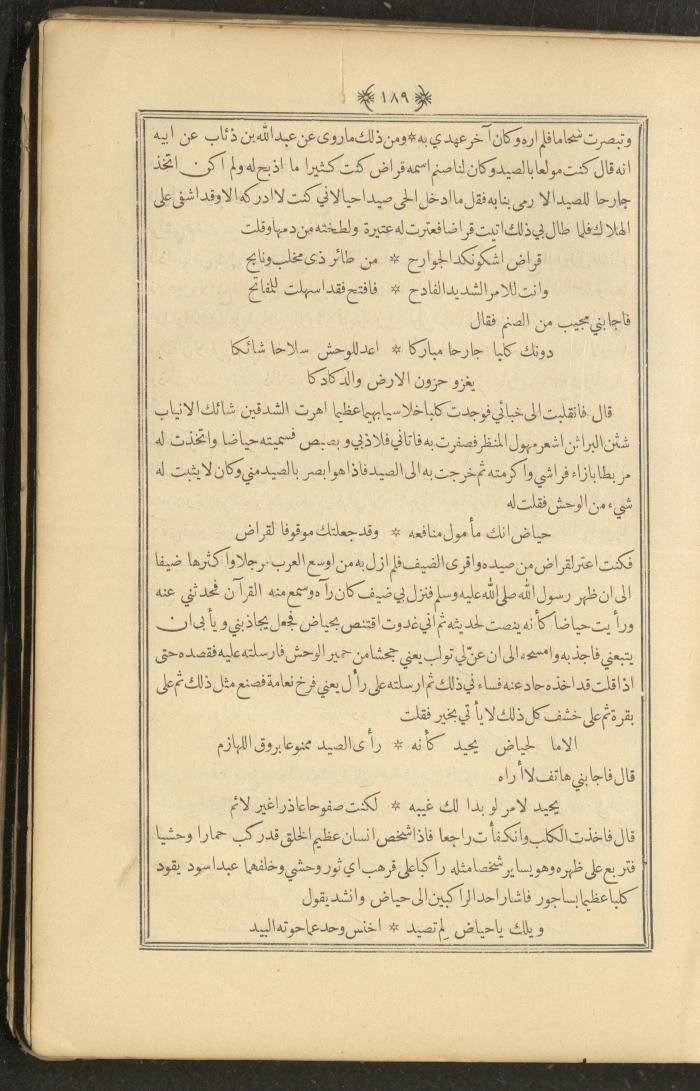 ١٨٩
وتبصرت شحاما فلم اره وكان آخر عهدي به * ومن ذلك ما روى عن عبد الله بن ذئاب عن ابيه
انه قال كنت مولعا بالصيد وكان لنا صنم اسمه قراض كنت كثيرا ما اذبح له ولم اكن اتخذ
جارحا للصيد الا رمى بنا به فقل ما ادخل الحى صيدا حيا لاني كنت لا ادركه الا وقد اشفى على
الهلاك فلما طال بي ذلك اتيت قراضا فعترت له عتيرة ولطخته من دمها وقلت
قراض اشكو نكد الجوارح * من طائر ذى مخلب ونابح
وانت للامر الشديد الفادح * فافتح فقد اسهلت للمفاتح
فاجابني مجيب من الصنم فقال
دونك كلبا جارحا مباركا * اعد للوحش سلاحا شائكا
يغزو حزون الارض والدكادكا
قال فانقلبت الى خبائي فوجدت كلبا خلاسيا بهيما عظيما اهرت الشدقين شائك الانياب
شثن البراثن اشعر مهول المنظر فصفرت به فاتاني فلاذ بي وبصبص فسميته حياضا واتخذت له
مربطا بازاء فراشي واكرمته ثم خرجت به الى الصيد فاذا هو ابصر بالصيد مني وكان لا يثبت له
شيء من الوحش فقلت له
حياض انك مأمول منافعه * وقد جعلتك موقوفا لقراض
فكنت اعتر لقراض من صيده واقرى الضيف فلم ازل به من اوسع العرب رجلا واكثرها ضيفا
الى ان ظهر رسول الله صلى الله عليه وسلم فنزل بي ضيف كان رآه وسمع منه القرآن فحدثني عنه
ورأيت حياضا كأنه ينصت لحديثه ثم اني غدوت اقتنص بحياض فجعل يجاذبني ويأبى ان
يتبعني فاجذبه وامسحه الى ان عن لي تولب يعني جحشا من حمير الوحش فارسلته عليه فقصده حتى
اذا قلت قد اخذه حاد عنه فساءني ذلك ثم ارسلته على رأل يعني فرخ نعامة فصنع مثل ذلك ثم على
بقرة ثم على خشف كل ذلك لا يأتي بخير فقلت
الا ما لحياض يحيد كأنه * رأى الصيد ممنوعا بروق اللهازم
قال فاجابني هاتف لا أراه
يحيد لامر لو بدا لك غيبه * لكنت صفوحا عاذرا غير لائم
قال فاخذت الكلب وانكفأت راجعا فاذا شخص انسان عظيم الخلق قد ركب حمارا وحشيا
فتربع على ظهره وهو يساير شخصا مثله راكبا على قرهب اي ثور وحشي وخلفهما عبد اسود يقود
كلبا عظيما بساجور فاشار احد الراكبين الى حياض وانشد يقول
ويلك يا حياض لم تصيد * اخنس وحد عما حوته البيد